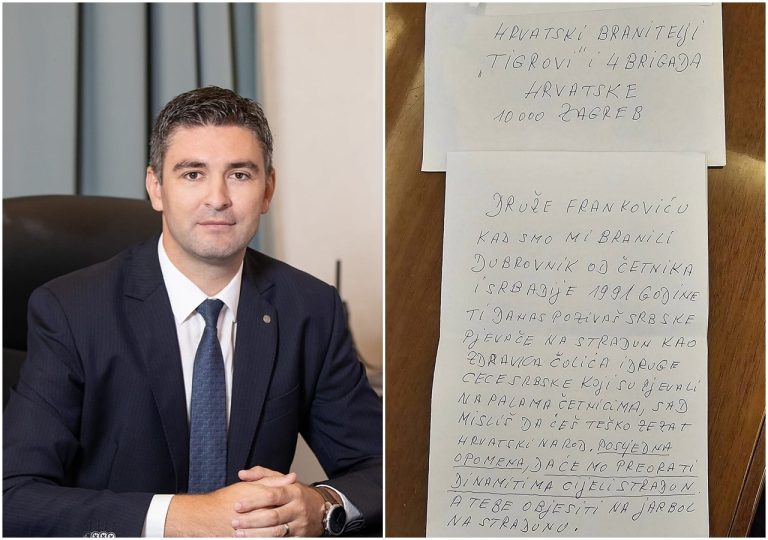 HRVATSKI BRANITELJI
„TIGROVI" I 4 BRIGADA
HRVATSKE
10 000 ZAGREB
DRUŽE FRANKOVIĆU
KAD SMO MI BRANILI
DUBROVNIK OD ČETNIKA
I SRBADIJE 1991 GODINE
TI DANAS POZIVAŠ SRBSKE
PJEVAČE NA STRADUN KAO
ZDRAVKA ČOLIĆA I DRUGE
CECE SRBSKE KOJI SU PJEVALI
NA PALAMA ČETNICIMA, SAD
MISLIŠ DA ĆEŠ TEŠKO ZEZAT
HRVATSKI NAROD, POSLJEDNA
OPOMENA, DA ĆE MO PREORATI
DINAMITIMA CIJELI STRADUN
A TEBE OBJESITI NA JARBOL
NA STRADUNU.